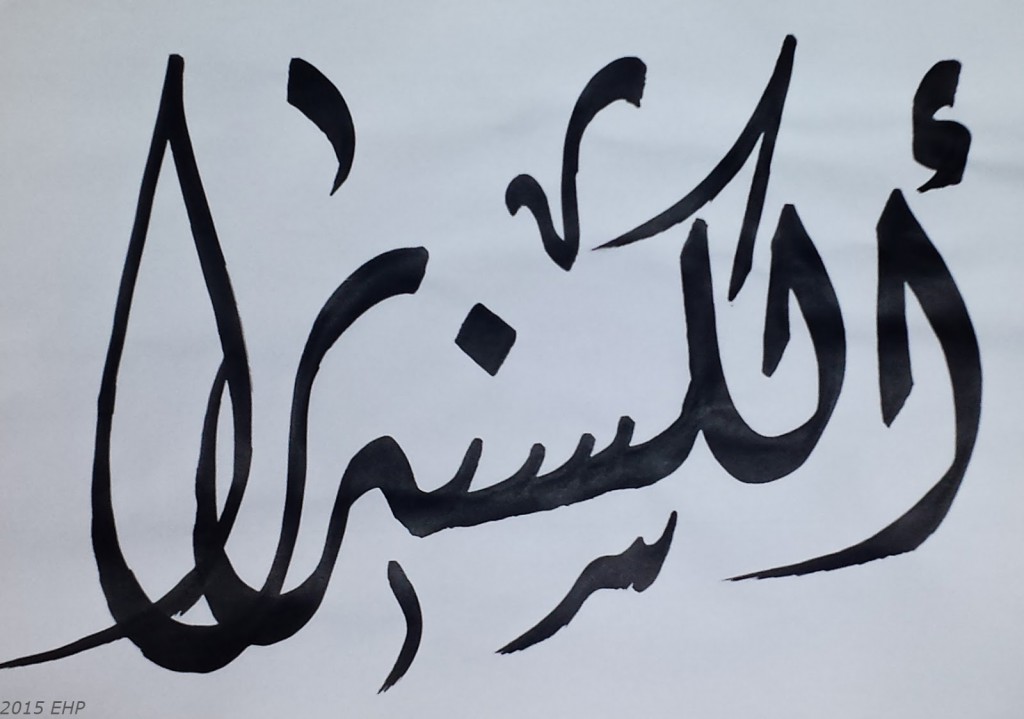 ألكسندرا
2015 EHP